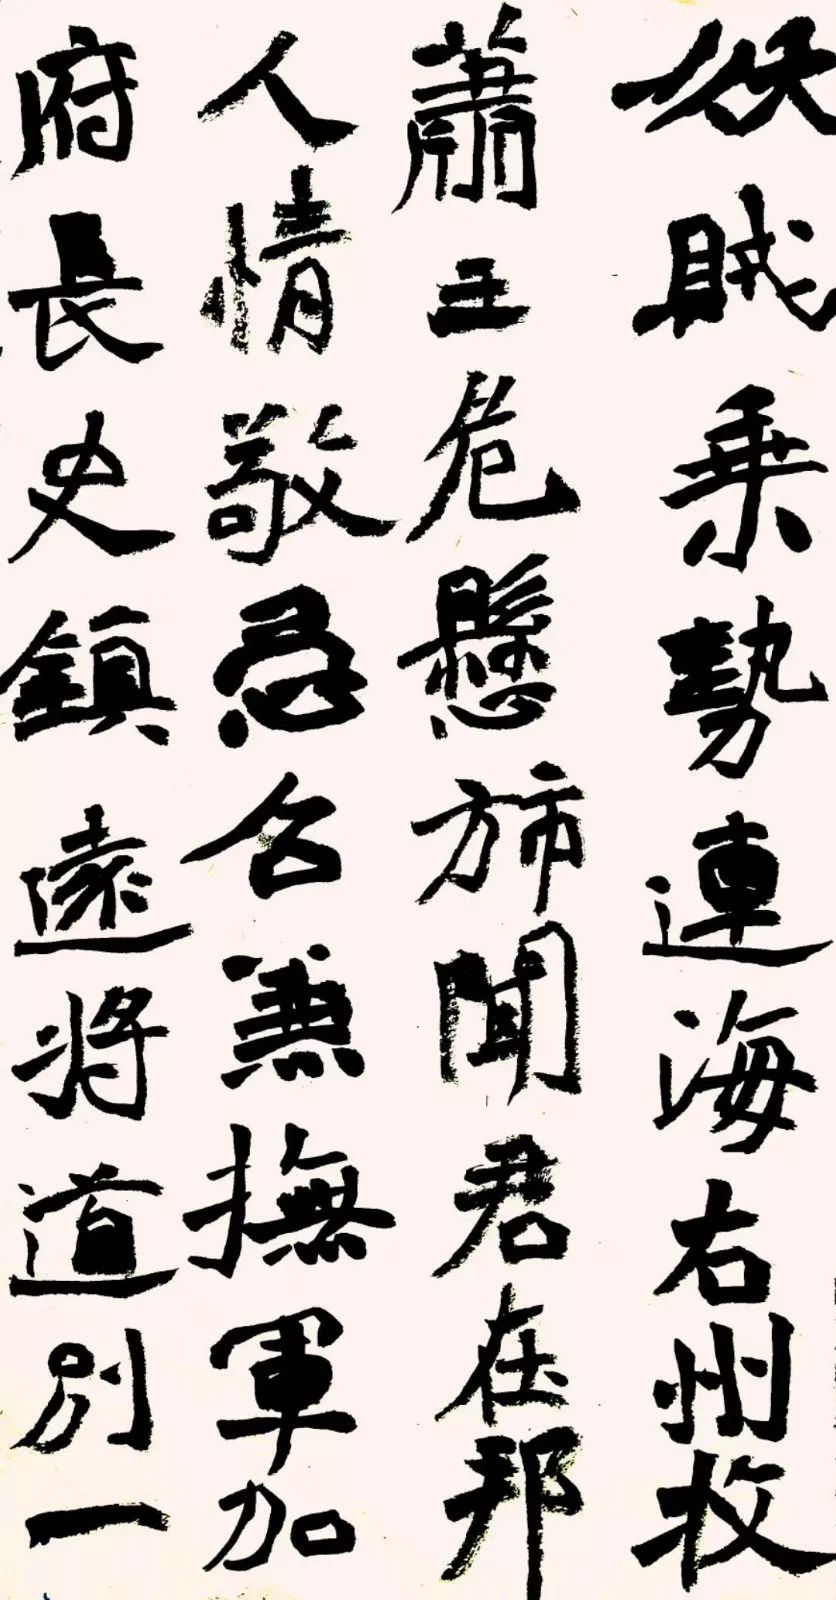 妖賊乗勢連海右州牧
蕭王危懸旆聞君在邦
人情敬忌召兼撫軍加
府長史鎮遠将道别一